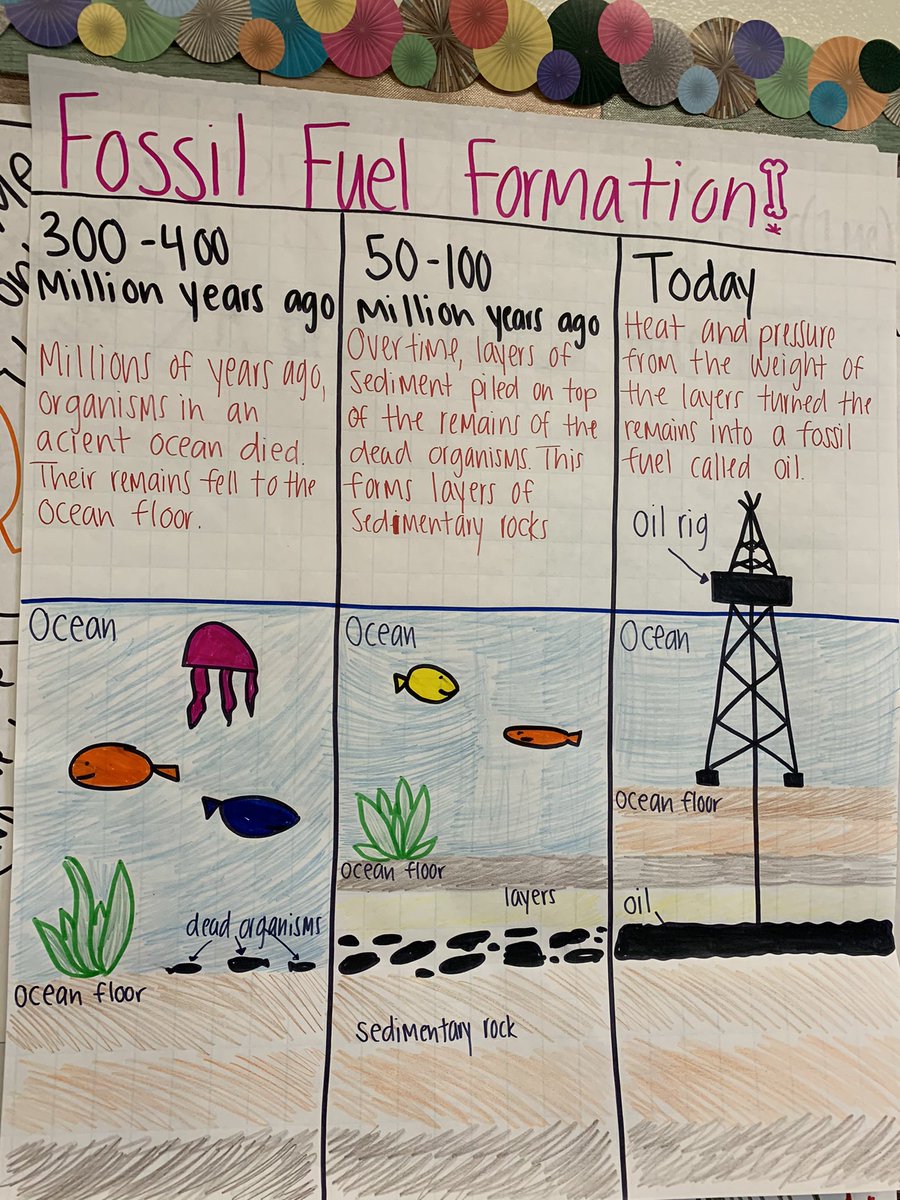 Fossil Fuel Formation!!
300-400
Million years ago
Millions of years ago,
organisms in an
acient ocean died.
Their remains fell to the
ocean floor.
Ocean
dead organisms
ocean floor
50-100
Million years ago
Over time, layers of
sediment piled on top
of the remains of the
dead organisms. This
forms layers of
sedimentary rocks
Ocean
ocean floor
layers
sedimentary rock
Today
Heat and pressure
from the weight of
the layers turned the
remains into a fossil
fuel called oil.
Oil rig
Ocean
ocean floor
oil